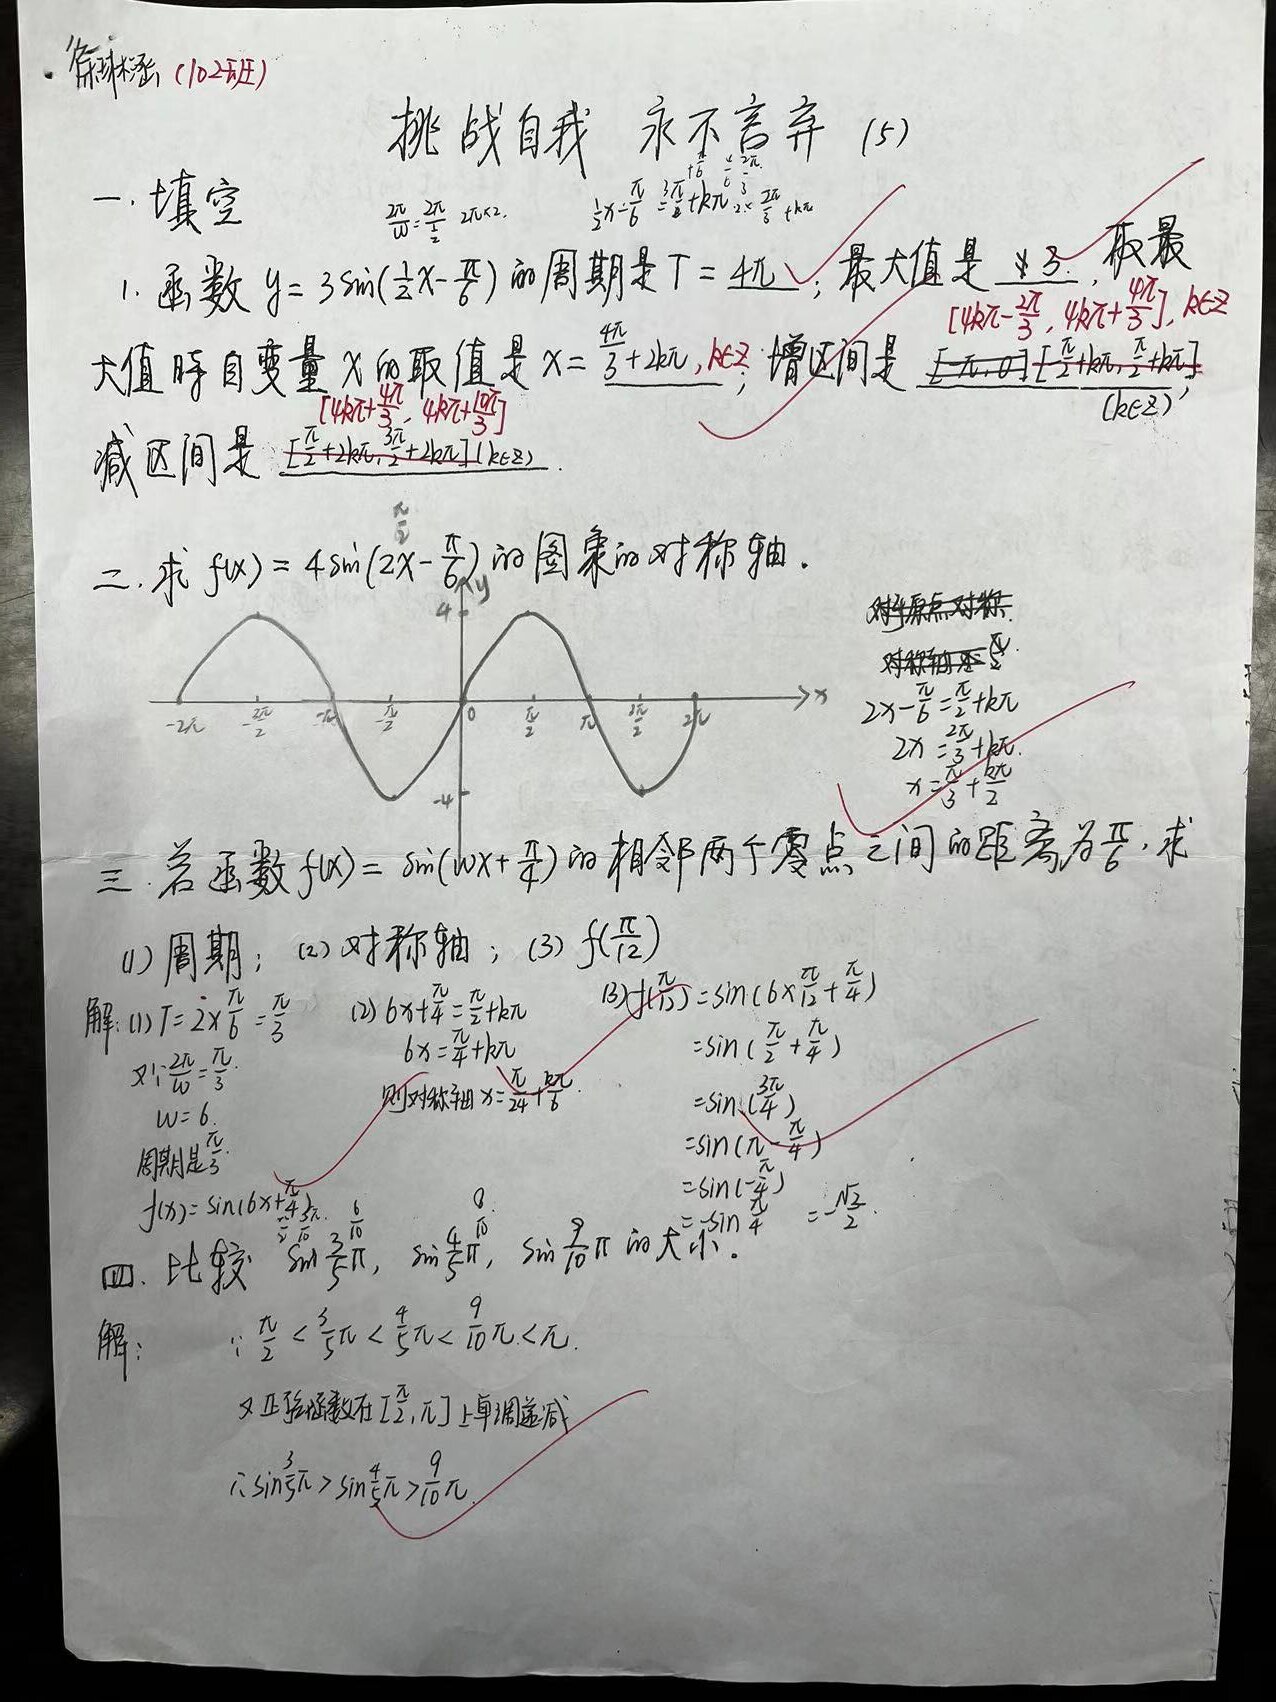 (102班)
挑战自我 永不言弃 (5)
一.填空
2π/w=2π/(1/2) 2π×2.
1/2x-π/6=3π/2+kπ
1. 函数 y=3sin(1/2x-π/6)的周期是T=4π; 最大值是 3. 取最
[4kπ-2π/3, 4kπ+4π/3], k∈Z
大值时自变量X的取值是x=4π/3+2kπ, k∈Z; 增区间是 [-π,0] [-π/2+kπ, π/2+kπ]
(k∈Z),
[4kπ+4π/3, 4kπ+10π/3]
减区间是 [π/2+2kπ, 3π/2+2kπ](k∈Z).
二.求 f(x)=4sin(2x-π/6)的图象的对称轴.
y
4
-2π -3π/2 -π -π/2 0 π/2 π 3π/2 2π x
-4
对于原点对称.
对称轴是π/2.
2x-π/6=π/2+kπ
2x=2π/3+kπ.
x=π/3+kπ/2
三.若函数f(x)=sin(wx+π/4)的相邻两个零点之间的距离为π/6,求
(1)周期; (2)对称轴; (3) f(π/12)
解:(1)T=2×π/6=π/3
又∵2π/w=π/3.
w=6.
周期是π/3.
f(x)=sin(6x+π/4)
(2)6x+π/4=π/2+kπ
6x=π/4+kπ
则对称轴x=π/24+kπ/6.
(3)f(π/12)=sin(6×π/12+π/4)
=sin(π/2+π/4)
=sin(3π/4)
=sin(π-π/4)
=sin(-π/4)
=-sinπ/4 =-√2/2.
6/10 8/10
四.比较 sin3/5π, sin4/5π, sin9/10π的大小.
解: ∵π/2<3/5π<4/5π<9/10π<π.
又正弦函数在[π/2,π]上单调递减
∴sin3/5π>sin4/5π>9/10π.